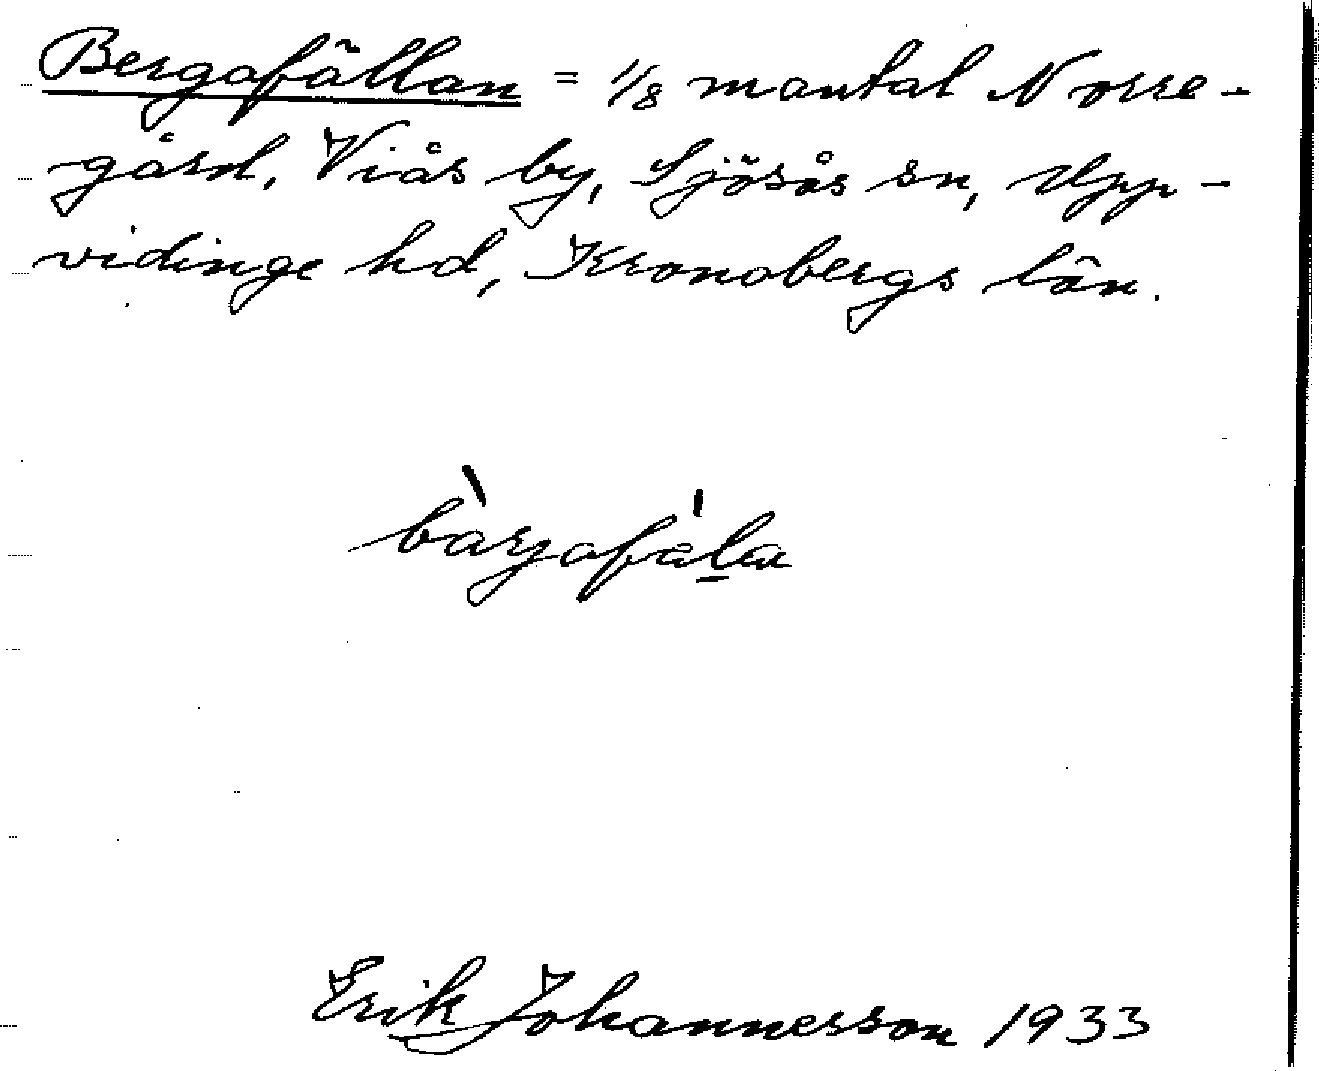 Bergafällan = 1/8 mantal Norre-
gård, Viås by, Sjösås sn, Upp-
vidinge hd, Kronobergs län.
bàrjafa'la
Erik Johannesson 1933